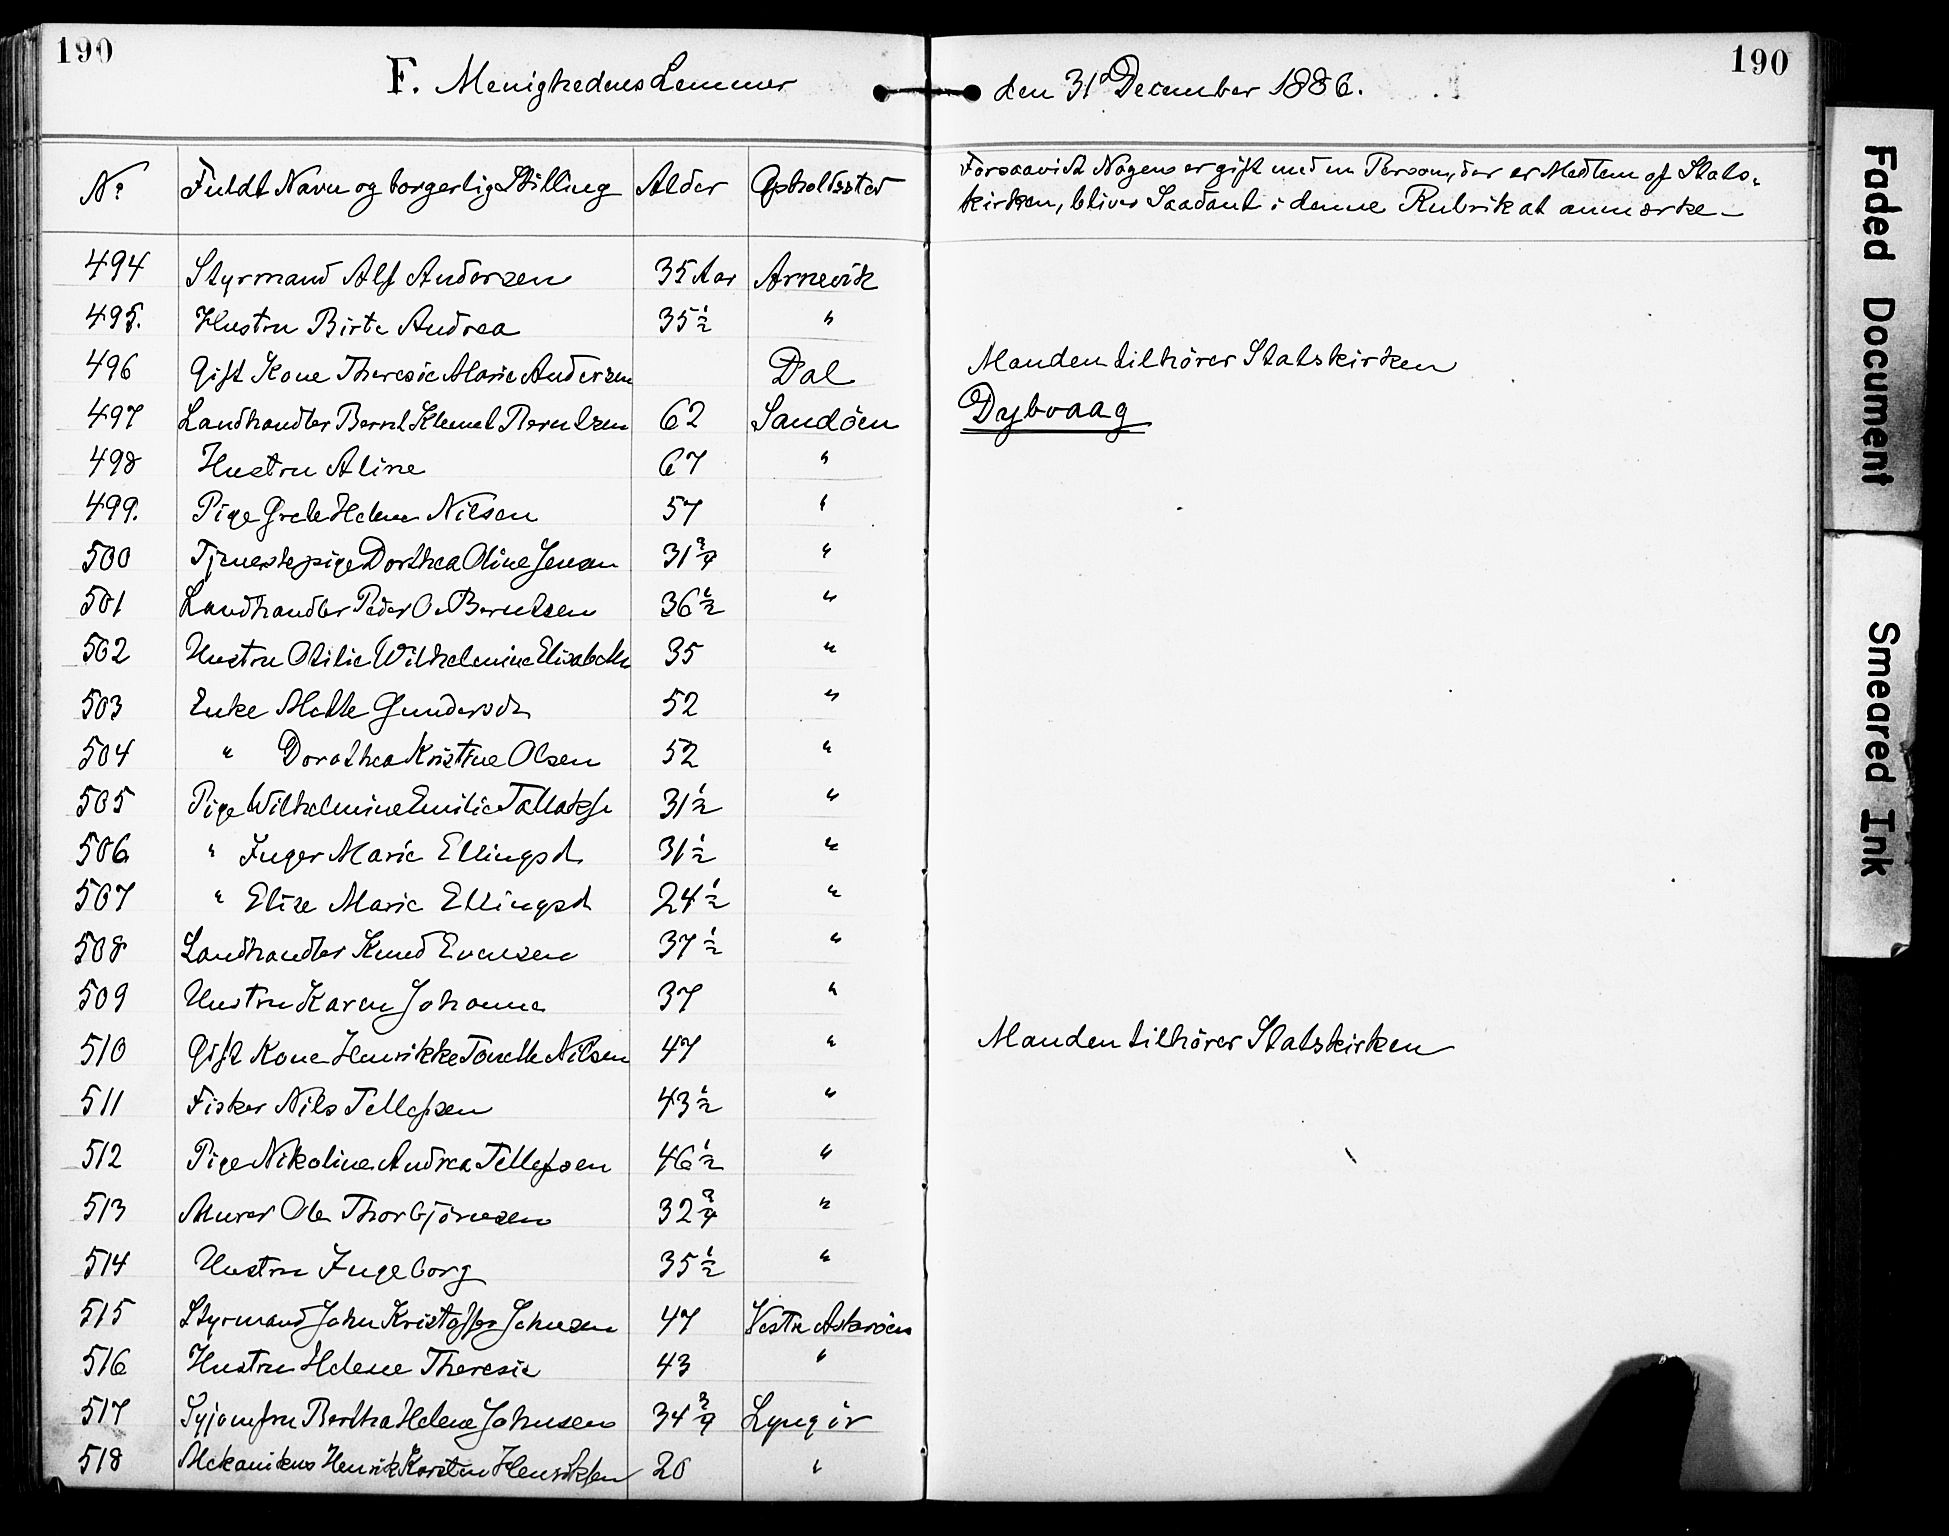 190
F. Menighedens Lemmer den 31te December 1886.
190
No Fuldt Navn og borgerlig Stilling Alder Opholdssted
Forsaavidt Nogen er gift med en Person, der er Medlem af Stats-
kirken, blives Saadant i denne Rubrik at anmærke
494 Styrmand Alf Andersen 35 Aar Arnevik
495. Hustru Birte Andrea 35 1/2 "
496 Gift Kone Theresie Marie Andersen Dal Manden tilhører Statskirken
497 Landhandler Bernt Klemet Berntsen 62 Sandöen Dybvaag
498 Hustru Aline 67 "
499. Pige Grete Helene Nilsen 57 "
500 Tjenestepige Dorthea Oline Jensen 31 3/4 "
501 Landhandler Peder O. Berntsen 36 1/2 "
502 Hustru Otilie Wilhelmine Elisabeth 35 "
503 Enke Mette Gundersdt 52 "
504 " Dorothea Kristine Olsen 52 "
505 Pige Wilhelmine Emilie Tallaksn 31 1/2 "
506 " Inger Marie Ellingsd 31 1/2 "
507 " Elise Marie Ellingsd 24 1/2 "
508 Landhandler Knud Evensen 37 1/2 "
509 Hustru Karen Johanne 37 "
510 Gift Kone Henrikke Tonette Nilsen 47 " Manden tilhører Statskirken
511 Fisker Nils Tellefsen 43 1/2 "
512 Pige Nikoline Andrea Tellefsen 46 1/2 "
513 Murer Ole Thorbjörnsen 32 3/4 "
514 Hustru Ingeborg 35 1/2 "
515 Styrmand John Kristoffer Johnsen 47 Vestre Askeröen
516 Hustru Helene Theresie 43 "
517 Syjomfru Bertha Helene Johnsen 34 3/4 Lyngör
518 Mekanikus Henrik Karsten Henriksen 20 "
Faded Document
Smeared Ink